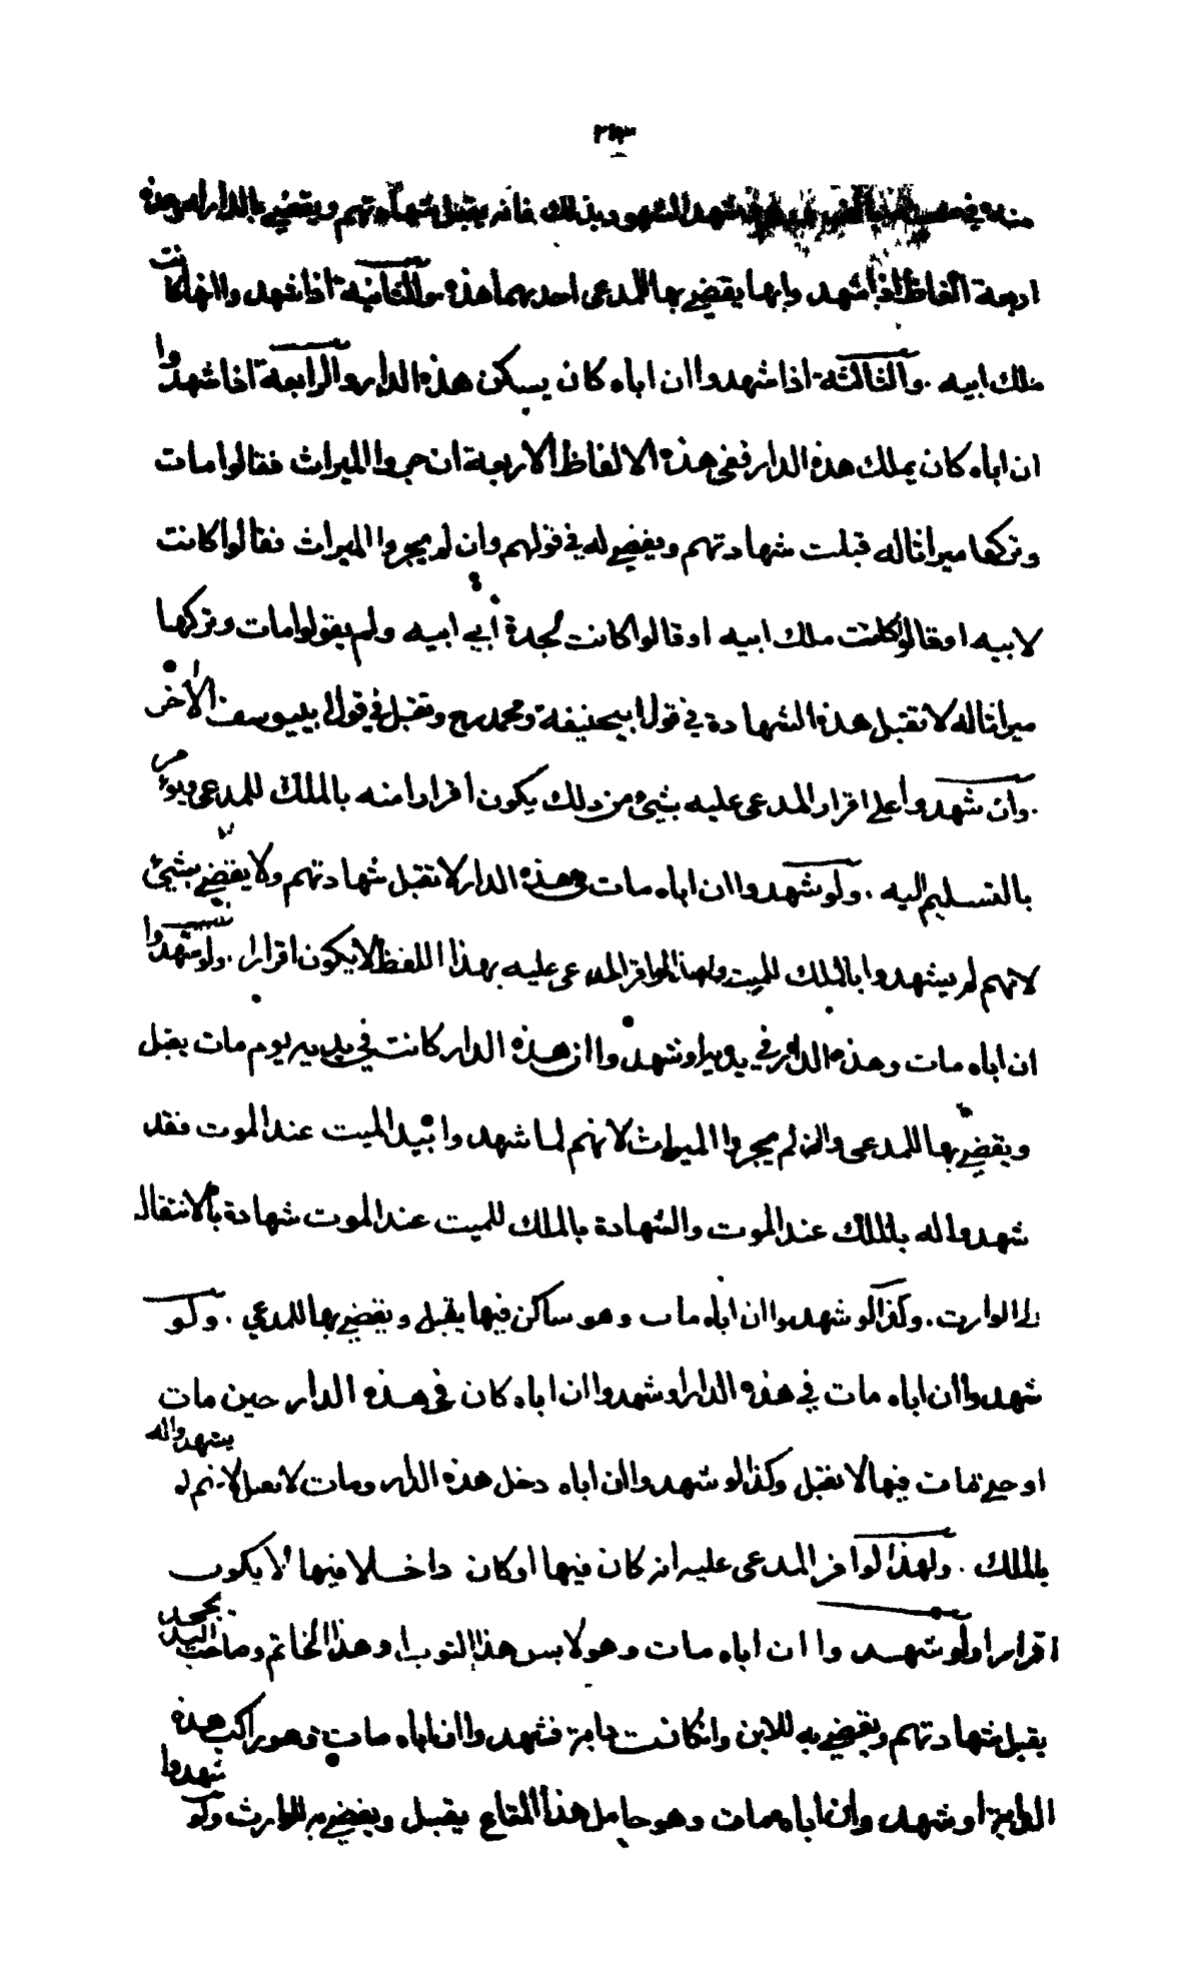 ٢٩٣
شهد الشهود بذلك فانه يقبل شهادتهم ويقضي بالدار
اربعة الفاظ اذا شهد وابها يقضي بها للمدعى احديهما هذه والثانية اذا شهد واانها كانت
ملك ابيه . والثالثة اذا شهدوا ان اباه كان يسكن هذه الدار والرابعة اذا شهدوا
ان اباه كان يملك هذه الدار ففي هذه الالفاظ الاربعة ان جروا الميراث فقالوا مات
وتركها ميراثا له قبلت شهادتهم ويقضي له في قولهم وان لم يجروا الميراث فقالوا كانت
لابيه او قالوا كانت ملك ابيه او قالوا كانت لجدة أبي ابيه ولم يقولوا مات وتركها
ميراثا له لا تقبل هذه الشهادة في قول ابيحنيفة ومحمد رح وتقبل في قول ابييوسف الأخر
. وان شهدوا على اقرار المدعى عليه بشئ من ذلك يكون أقرارا منه بالملك للمدعى ويؤمر
بالتسليم اليه . ولو شهدوا ان اباه مات وهذه الدار لا تقبل شهادتهم ولا يقضي بشئ
لانهم لم يشهدوا بالملك للميت ولهذا لو اقر المدعى عليه بهذا اللفظ لا يكون اقرارا . ولو شهدوا
ان اباه مات وهذه الدار في يديه او شهدوا ان هذه الدار كانت في يديه يوم مات يقبل
ويقضي بها للمدعى وان لم يجروا الميراث لانهم لما شهدوا بيد الميت عند الموت فقد
شهدوا له بالملك عند الموت والشهادة بالملك للميت عند الموت شهادة بالانتقال
الى الوارث . وكذا لو شهدوا ان اباه مات وهو ساكن فيها يقبل ويقضي بها للمدعي . ولو
شهدوا ان اباه مات في هذه الدار او شهدوا ان اباه كان في هذه الدار حين مات
او حتى مات فيها لا تقبل وكذا لو شهدوا ان اباه دخل هذه الدار ومات لا تقبل لانهم لم يشهدوا له
بالملك . ولهذا لو اقر المدعى عليه انه كان فيها او كان داخلا فيها لا يكون
اقرارا ولو شهد وا ان اباه مات وهو لابس هذا الثوب او هذا الخاتم وصاحب اليد يجحد
يقبل شهادتهم ويقضي به للابن وان كانت دابة فشهد وا ان اباه مات وهو راكب هذه
الدابة او شهد وا ان اباه مات وهو حامل هذا المتاع يقبل ويقضي به للوارث ولو شهدوا